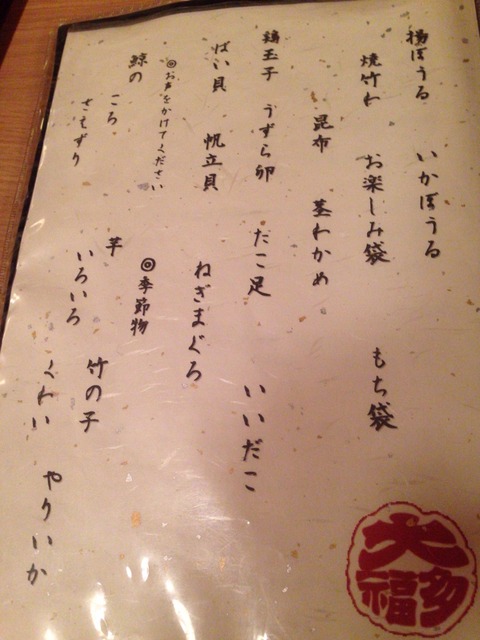 揚ぼうる　いかぼうる
焼竹わ　お楽しみ袋　もち袋
昆布　茎わかめ
鶏玉子　うずら卵　たこ足　いいだこ
ばい貝　帆立貝　ねぎまぐろ
◎お声をかけてください
◎季節物
鯨の　ころ　さえずり
芋　いろいろ
竹の子　くわい　やりいか
大多福